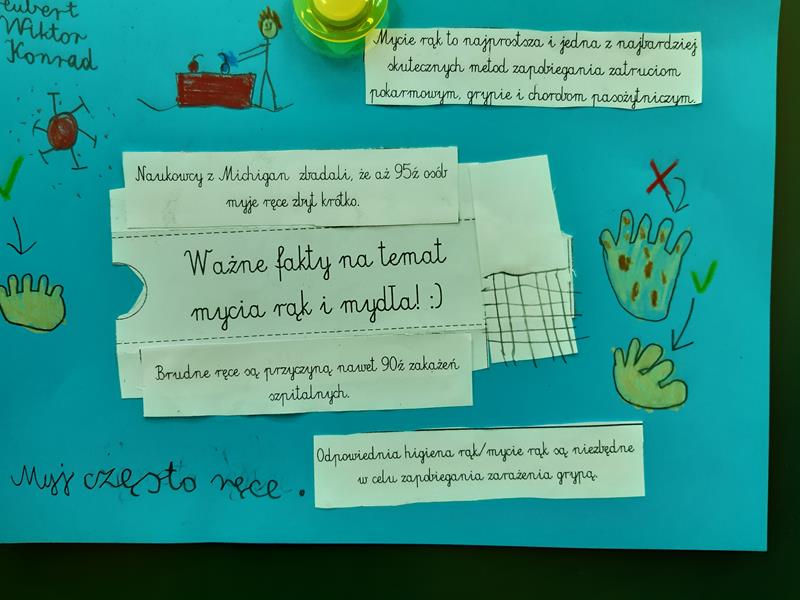 Hubert
Wiktor
Konrad
Mycie rąk to najprostsza i jedna z najbardziej
skutecznych metod zapobiegania zatruciom
pokarmowym, grypie i chorobom pasożytniczym.
Naukowcy z Michigan zbadali, że aż 95% osób
myje ręce zbyt krótko.
Ważne fakty na temat
mycia rąk i mydła! :)
Brudne ręce są przyczyną nawet 90% zakażeń
szpitalnych.
Odpowiednia higiena rąk/mycie rąk są niezbędne
w celu zapobiegania zarażenia grypą.
Myj często ręce.